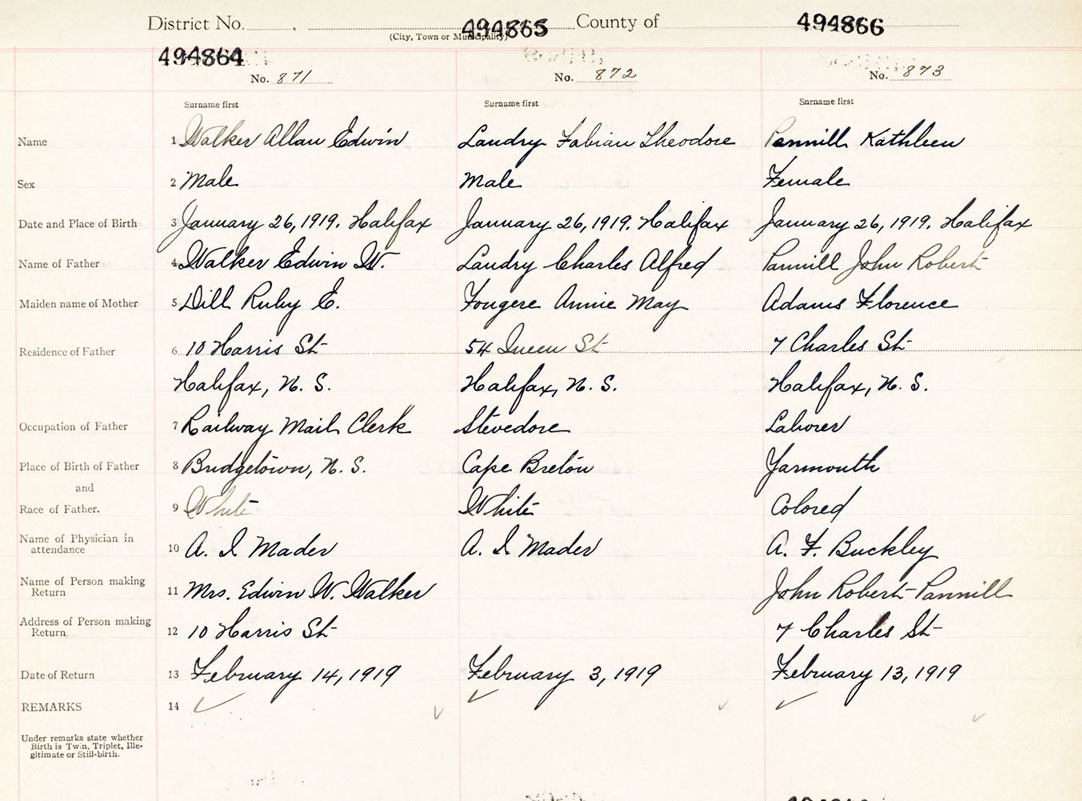 District No. County of
(City, Town or Municipality)
494864 494865 494866
No. 871 No. 872 No. 873
Surname first Surname first Surname first
Name 1 Walker Allan Edwin Landry Fabian Theodore Pannill Kathleen
Sex 2 Male Male Female
Date and Place of Birth 3 January 26, 1919. Halifax January 26, 1919. Halifax January 26, 1919. Halifax
Name of Father 4 Walker Edwin W. Landry Charles Alfred Pannill John Robert
Maiden name of Mother 5 Dill Ruby E. Fougere Annie May Adams Florence
Residence of Father 6 10 Harris St 54 Queen St 7 Charles St
Halifax, N. S. Halifax, N. S. Halifax, N. S.
Occupation of Father 7 Railway Mail Clerk Stevedore Laborer
Place of Birth of Father 8 Bridgetown, N. S. Cape Breton Yarmouth
and
Race of Father. 9 White White Colored
Name of Physician in
attendance 10 A. I. Mader A. I. Mader A. F. Buckley
Name of Person making
Return 11 Mrs. Edwin W. Walker John Robert Pannill
Address of Person making
Return 12 10 Harris St 7 Charles St
Date of Return 13 February 14, 1919 February 3, 1919 February 13, 1919
REMARKS 14
Under remarks state whether
Birth is Twin, Triplet, Ille-
gitimate or Still-birth.